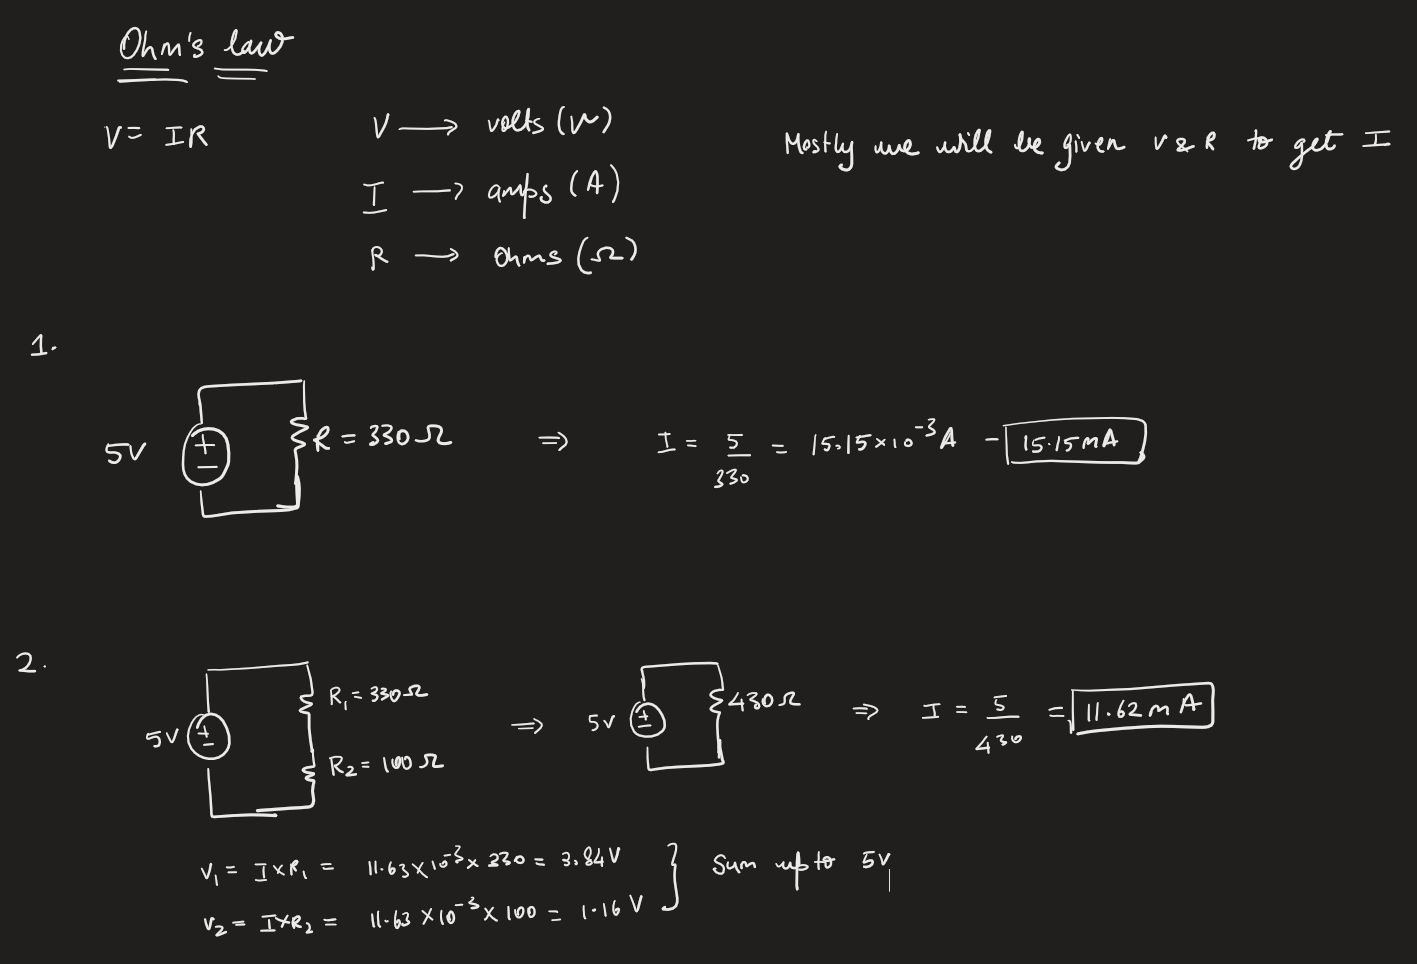 Ohm's law
V = IR
V → volts (V)
I → amps (A)
R → Ohms (Ω)
Mostly we will be given V & R to get I
1.
5V
R = 330 Ω
⇒ I = 5/330 = 15.15 × 10⁻³ A - 15.15 mA
2.
5V
R₁ = 330 Ω
R₂ = 100 Ω
⇒ 5V
430 Ω
⇒ I = 5/430 = 11.62 m A
V₁ = I × R₁ = 11.63 × 10⁻³ × 330 = 3.84 V
V₂ = I × R₂ = 11.63 × 10⁻³ × 100 = 1.16 V
} Sum up to 5V